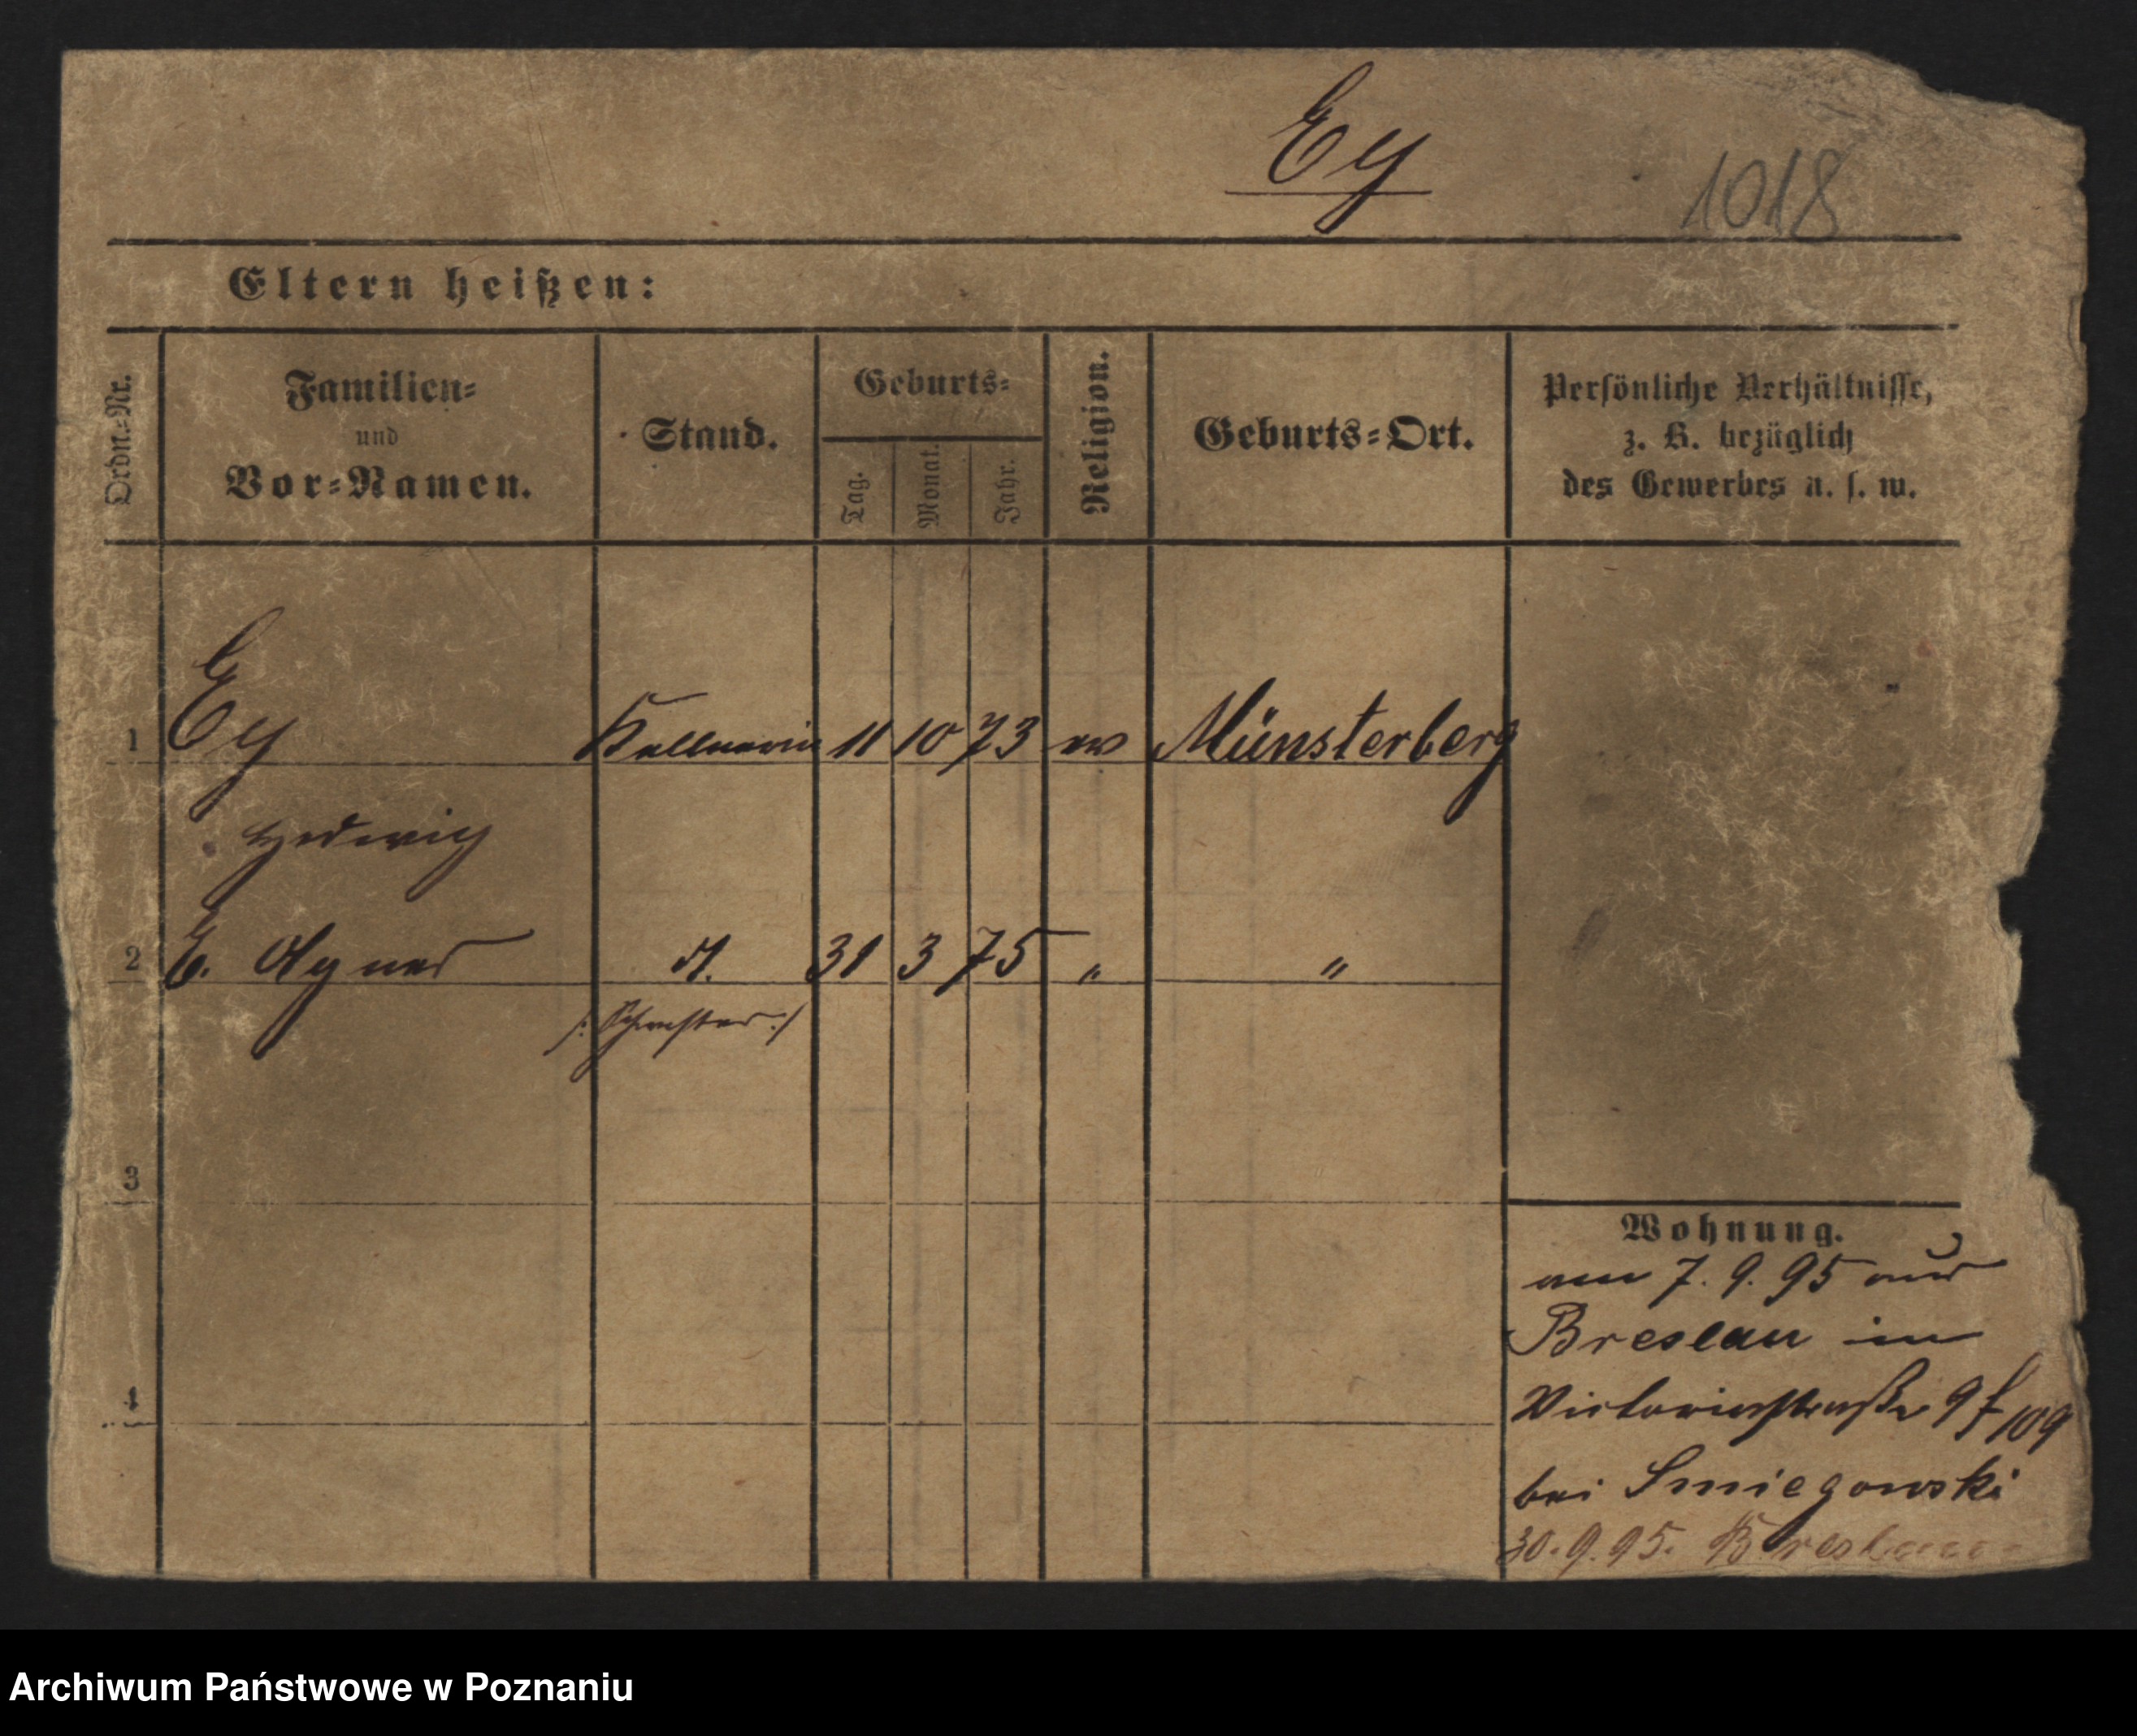 Ey
1018
Eltern heißen:
Ordn.-Nr.
Familien-
und
Vor-Namen.
Stand.
Geburts-
Tag.
Monat.
Jahr.
Religion.
Geburts-Ort.
Persönliche Verhältnisse,
z. B. bezüglich
des Gewerbes u. s. w.
1 Ey Kellnerin 11 10 73 ev Münsterberg
Hedwig
2 E. Agnes dt. 31 3 75 " "
/: Schwester :/
3
4
Wohnung.
am 7. 9. 95 aus
Breslau in
Victoriastraße 9 f 109
bei Smiegowski
30. 9. 95. Breslau
Archiwum Państwowe w Poznaniu